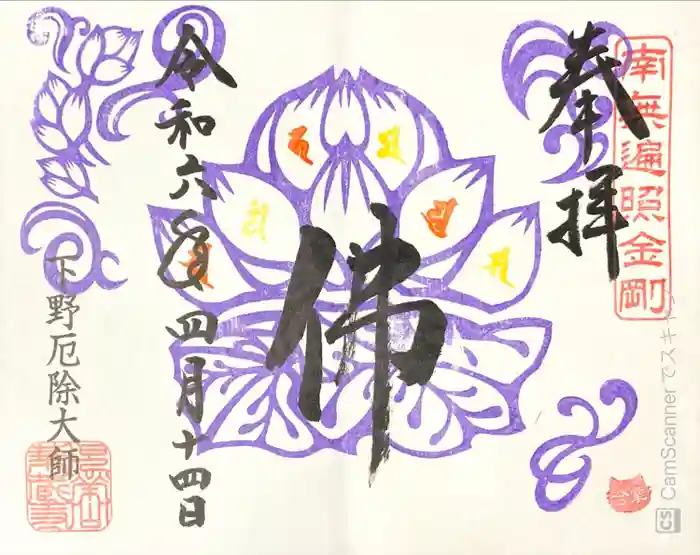 南無遍照金剛
奉拝
佛
令和六年四月十四日
下野厄除大師
CS CamScannerでスキャン